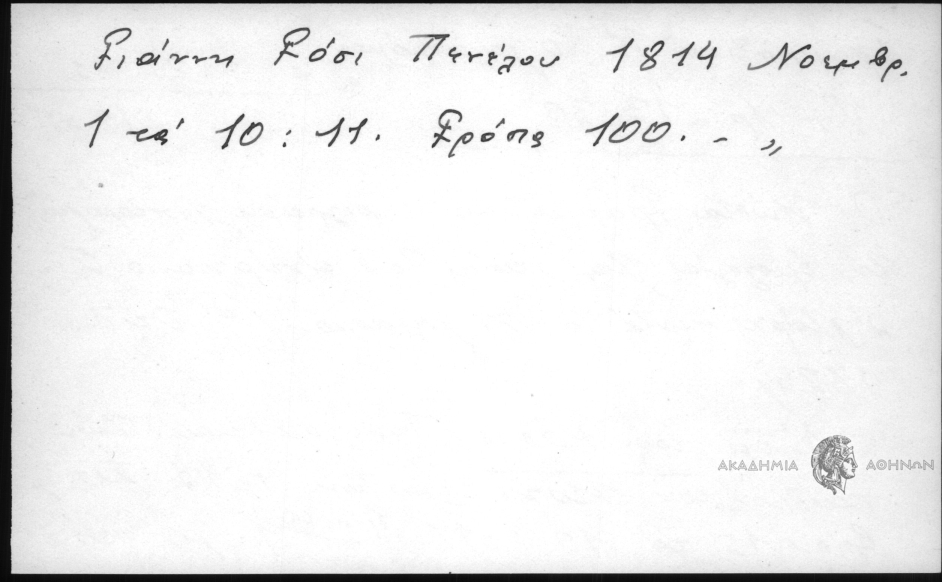 Γιάννη Γόσι Πενέλου 1814 Νοεμβρ.
1 τά 10 : 11. Γρόσια 100. - „
ΑΚΑΔΗΜΙΑ ΑΘΗΝΩΝ